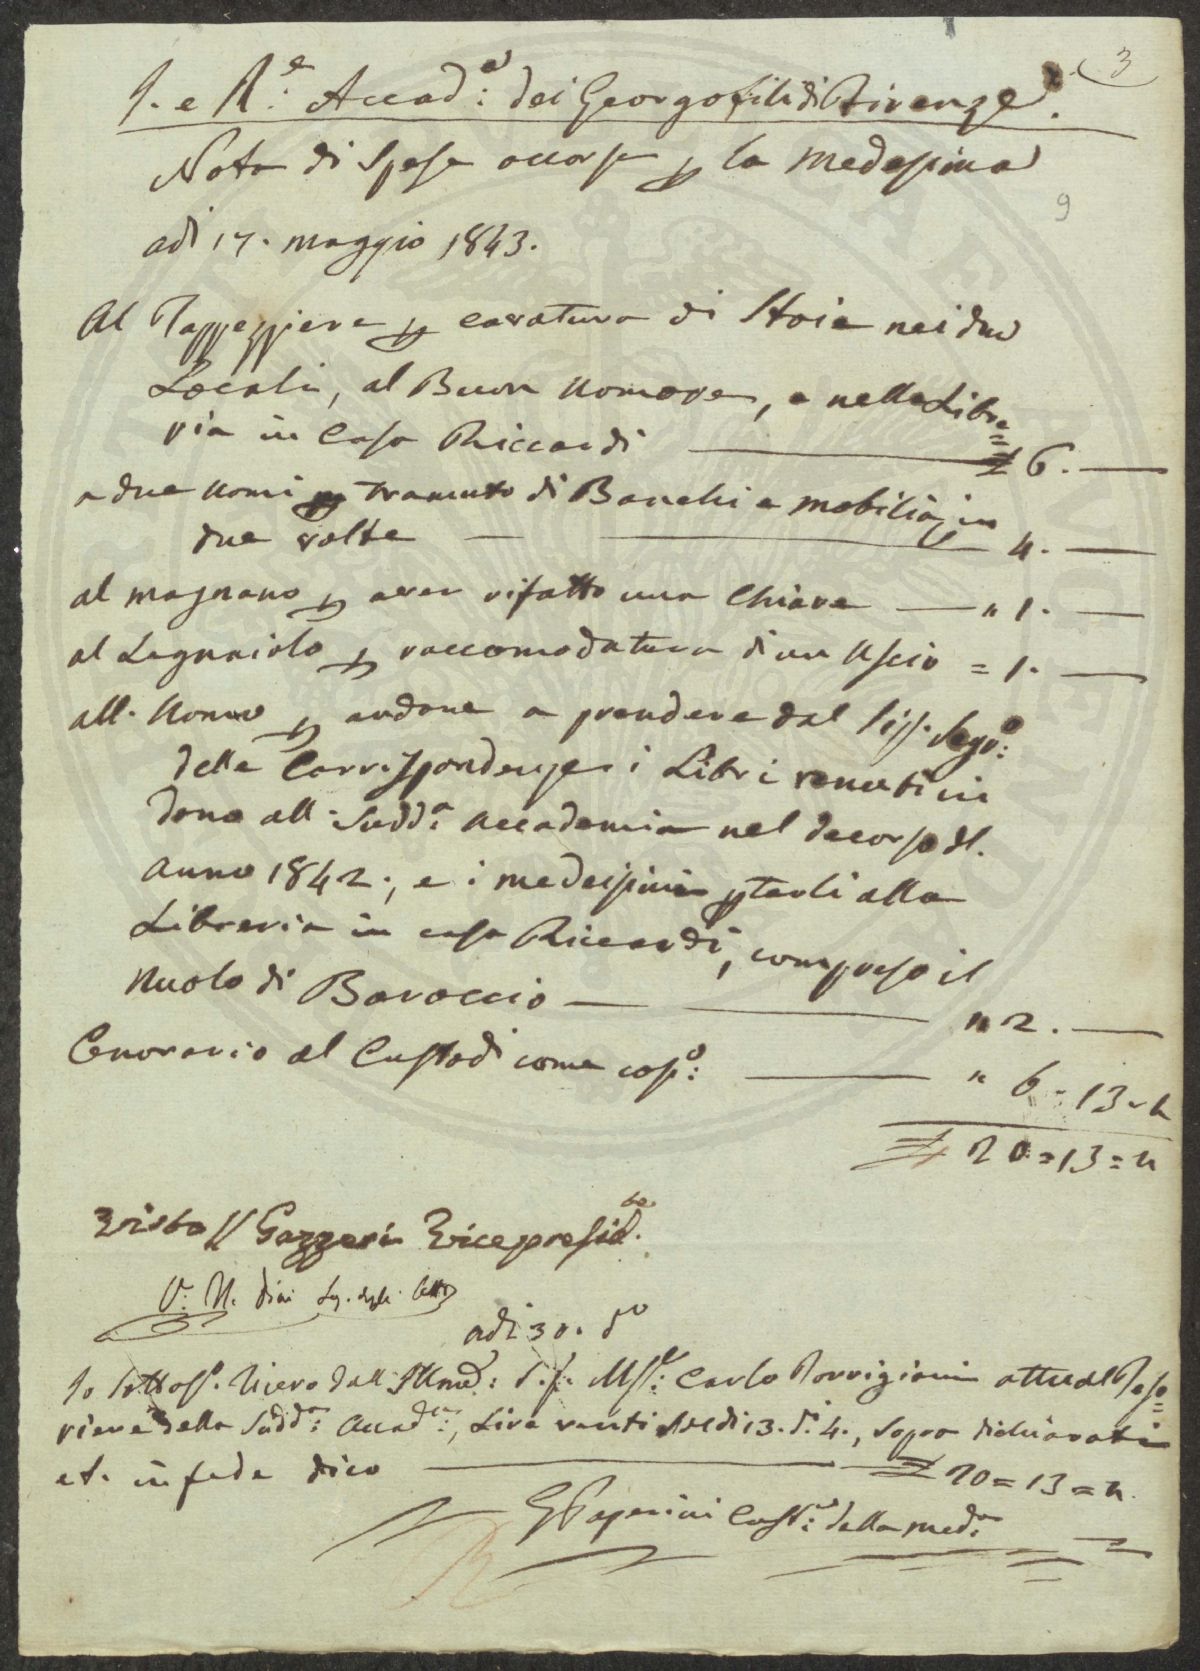 3
I. e R.e Accad:a dei Georgofili di Firenze.
Nota di Spese occorse p la medesima
9
adi 17. maggio 1843.
Al Tappezziere p cavatura di Stoie nei due
Locali, al Buon Umore, e nella Libre=
ria in Casa Riccardi £ 6. —
a due Uomi p tramuto di Banchi e mobilia, in
due volte — 4. —
al magnano p aver rifatto una Chiave — " 1. —
al Legnaiolo p raccomodatura di un Uscio = 1. —
all. Uomo p andare a prendere dal Sig. Segr:o
delle Corrispondenze i Libri venuti in
dono all. Sudd:a Accademia nel decorso dl.
Anno 1842., e i medesimi ptarli alla
Libreria in casa Riccardi, compreso il
Nuolo di Baroccio — " 2. —
Onorario al Custode come cos:o — " 6 - 13 - 4
£ 20 = 13 = 4
Visto G Gazzeri Vicepresid.te
V: U. Dini Seg. degli Atti
adi 30. do
Io Sottos.o Ricevo dall Illmo: S.r. M.se: Carlo Torrigiani attual Teso=
riere della Sudd:a Accad:a, Lire venti Soldi 13. d. 4., sopra dichiarati
et. in fede dico — £ 20 = 13 = 4.
G Paperini Cust:e della med:a